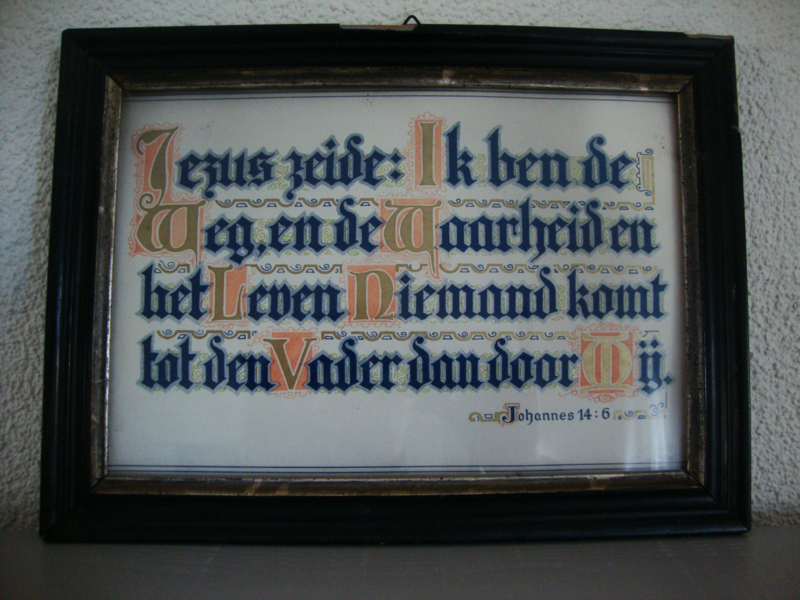 Jezus zeide: Ik ben de
Weg, en de Waarheid en
het Leven Niemand komt
tot den Vader dan door Mij.
Johannes 14:6